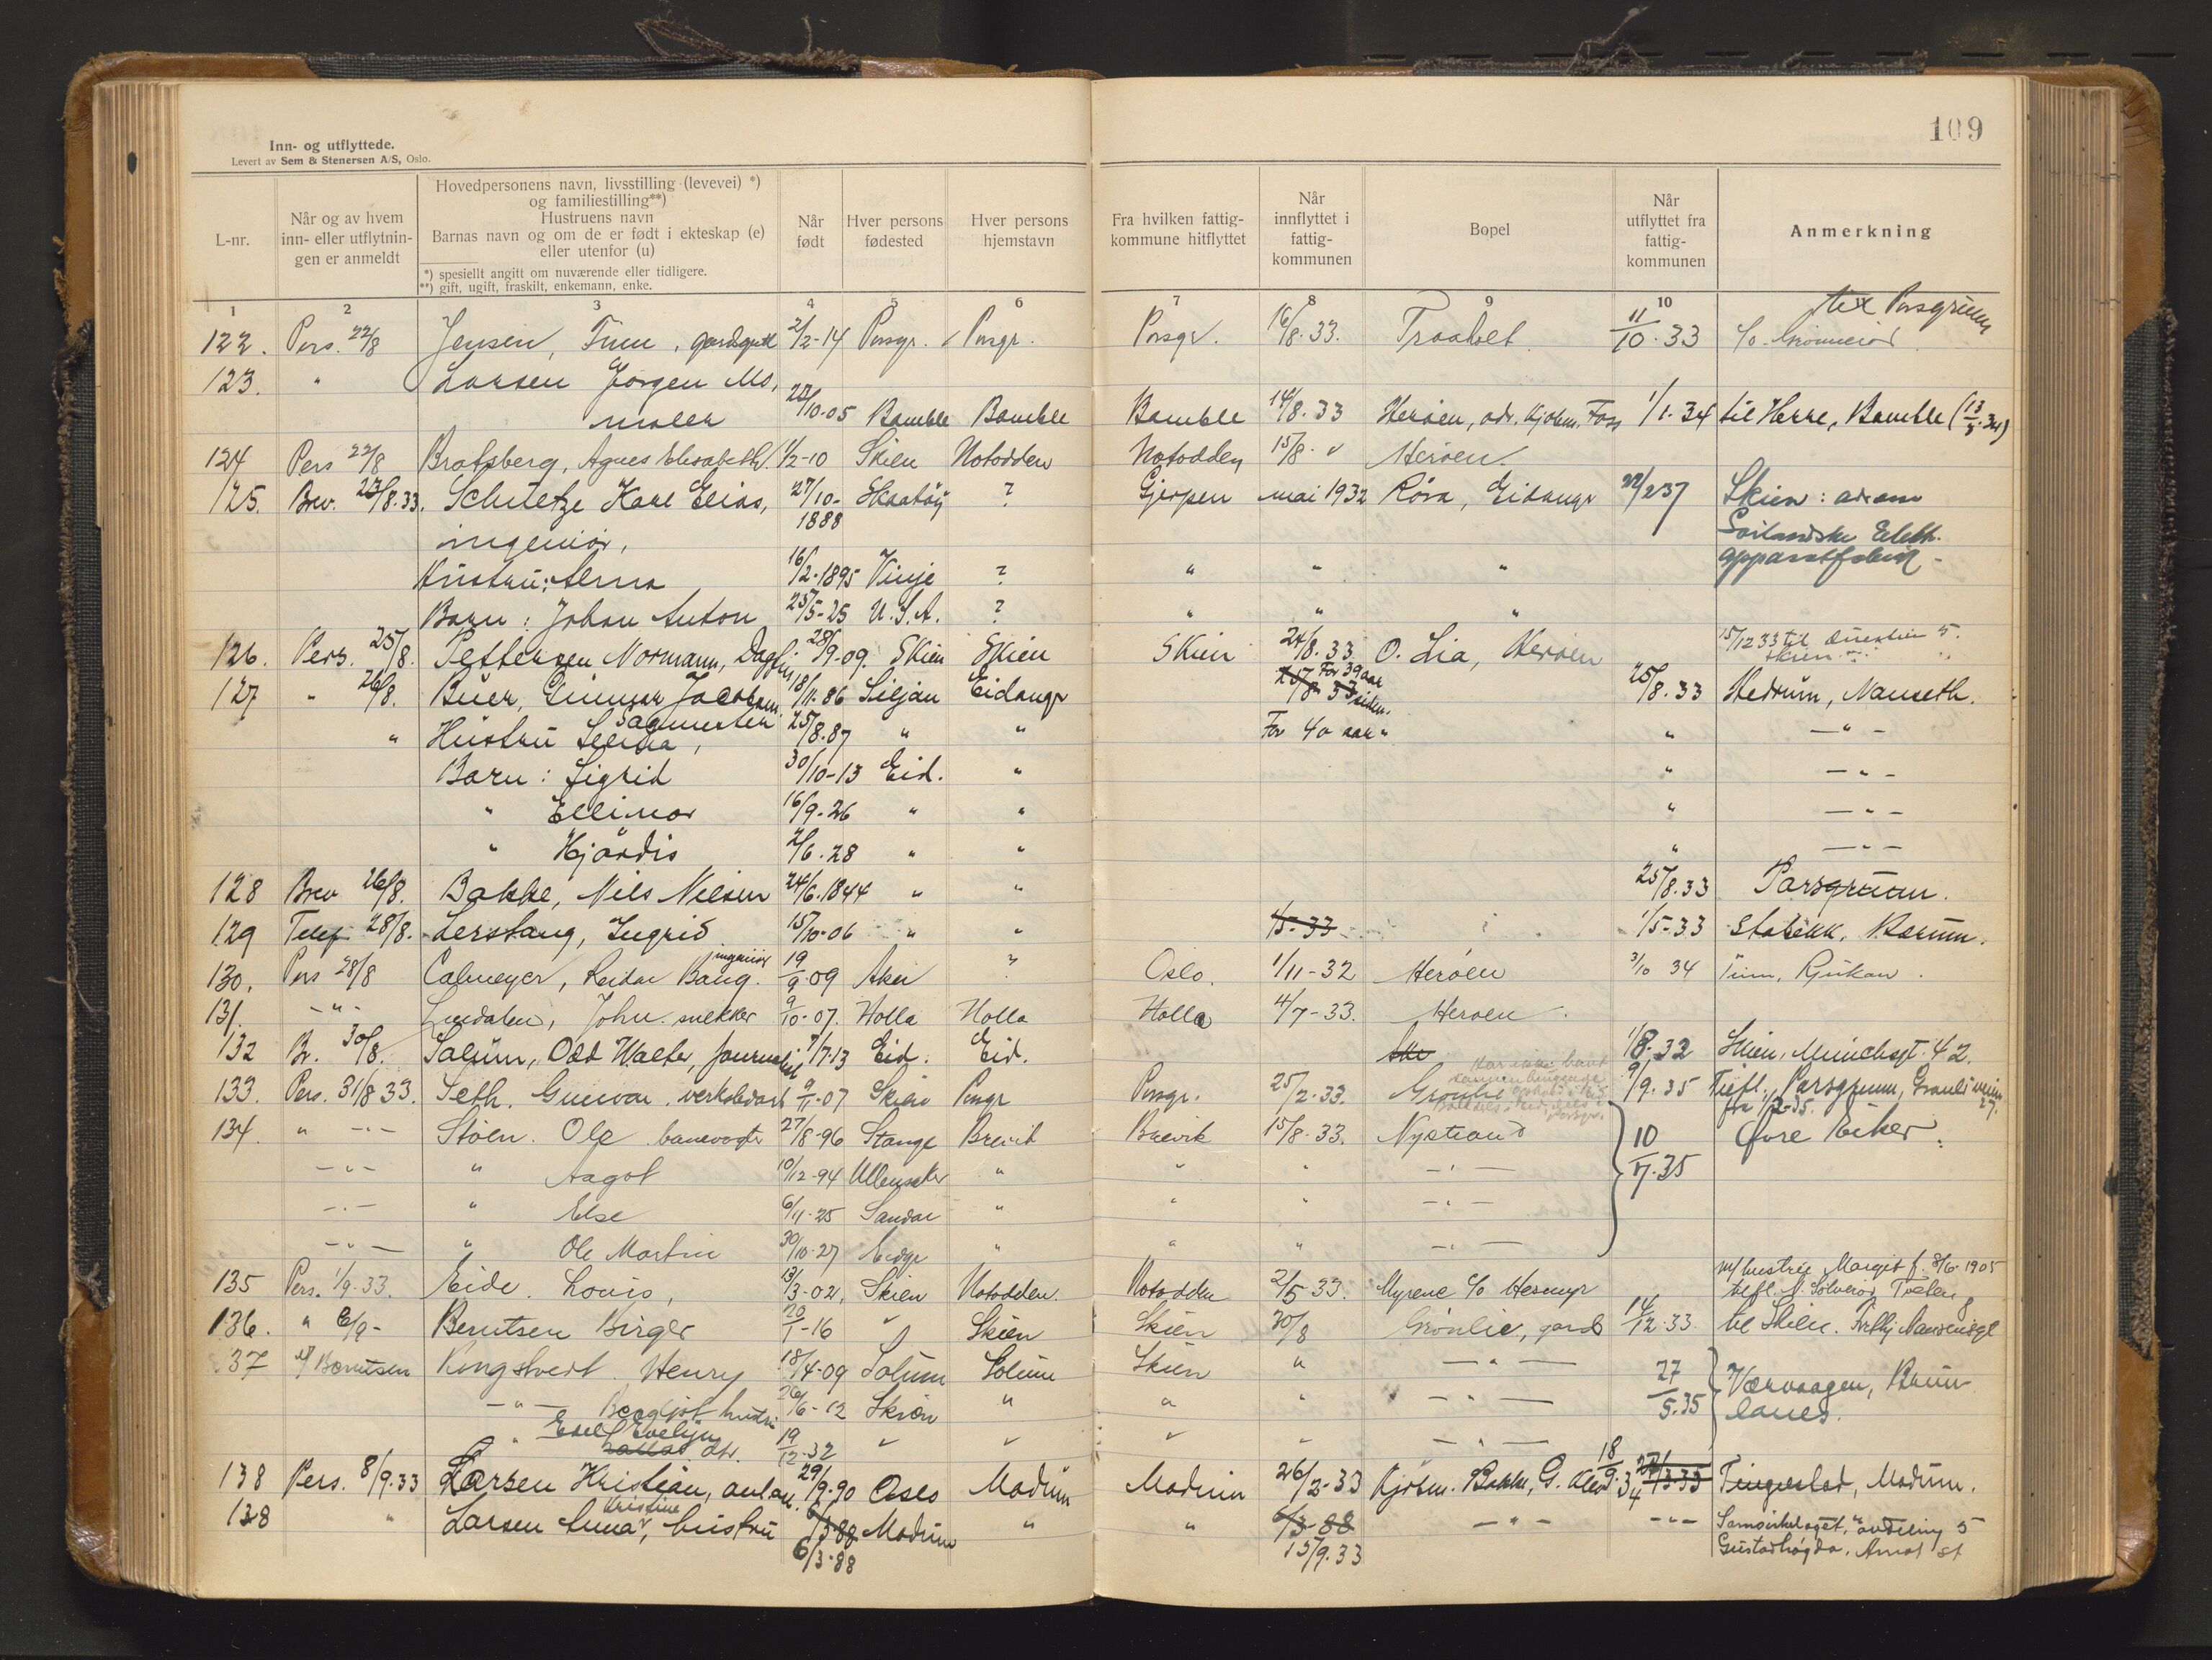 109
Inn- og utflyttede.
Levert av Sem & Stenersen A/S, Oslo.
L-nr.
Når og av hvem
inn- eller utflytnin-
gen er anmeldt
Hovedpersonens navn, livsstilling (levevei) *)
og familiestilling**)
Hustruens navn
Barnas navn og om de er født i ekteskap (e)
eller utenfor (u)
*) spesiellt angitt om nuværende eller tidligere.
**) gift, ugift, fraskilt, enkemann, enke.
Når
født
Hver persons
fødested
Hver persons
hjemstavn
Fra hvilken fattig-
kommune hitflyttet
Når
innflyttet i
fattig-
kommunen
Bopel
Når
utflyttet fra
fattig-
kommunen
Anmerkning
1 2 3 4 5 6 7 8 9 10
til Porsgrunn
122. Pers. 22/8 Jensen, Finn, 2/2-14 Porsgr. Porsgr. Porsgr. 16/8.33. Traaholt 11/10.33 c/o
123. " Larsen Jørgen Mo,
maler 22/10-05 Bamble Bamble Bamble 14/8.33 Herøen, adr. Kjøbm. Foss 1/1.34 til Herre, Bamble (13/3.34)
124 Pers 22/8 Bratsberg, Agnes Elisabeth 1/2-10 Skien Notodden Notodden 15/8 " Herøen.
125. Brev. 23/8.33. Schultze Karl Elias, 27/10-1888 Skaatøy ? Gjerpen mai 1932 Røra, Eidanger 22/2 37 Skien: adr am
ingeniør, Sørlandske Elekt.
Hustru: Alma 16/2-1895 Vinje ? " " " apparatfabrik -
Barn: Johan Anton 25/5-25 U.S.A. ? " " "
126. Pers. 25/8. Pettersen Normann, Dagfin 28/9-09. Skien Skien Skien 24/8.33 O. Lia, Herøen 15/12 33 til 5. Skien
127 " 26/8. Buer, Gunnar Jacobsen 18/11-86 Siljan Eidangr 25/8 33 For 39 aar siden. 25/8.33 Hedrum, Nanseth.
Sagmester
" Hustru 25/8.87 " " For 40 aar " " — " —
Barn: Sigrid 30/10-13 Eid. " " — " —
" Ellinor 16/9-26 " " " — " —
" Hjørdis 2/6.28 " " " — " —
128 Brev 26/8. Bakke, Nils Nielsen 24/6.1844 " " 25/8.33 Porsgrunn.
129 Telef 28/8. Lerstang, Ingrid 15/10-06 " " 1/5-33 1/5-33 Stabekk, Bærum.
130. Pers 28/8 Calmeyer, Reidar Bang. ingeniør 19/9-09 Aker ? Oslo. 1/11-32 Herøen 3/10 34 Tinn, Rjukan.
131. -"- Lindalen, John snekker 9/10-07. Holla Holla Holla 4/7-33. Herøen.
132 Br. 30/8. Solum, Odd Walter, journalist 7/7-13 Eid. Eid. 1/8.32 Skien, Munchsgt. 42.
133. Pers. 31/8 33. Seth. Gunvor. 9/11-07 Skien Porsgr Porsgr. 25/2-33. Grønlie 9/9.35 Porsgrunn,
134. " -"- Støen. Ole banevogter 27/8-96 Stange Brevik Brevik 15/8-33. Nystrand 10/7.35 Øvre Eiker.
-"- " Aagot 10/12-94 Ullensaker " " " -"-
-"- " Else 6/11-25 Sandar " " " -"-
-"- " Ole Martin 30/10-27 Eidgr " " " -"-
135 Pers. 1/9-33. Eide. Louis, 13/3-02. Skien Notodden. Notodden 2/5-33. Myrene c/o m/ hustru Margit f. 8/6-1905
136. " 2/9- Berntsen Birger 20/1-16 " Skien Skien 30/8 Grønlie, gard 14/12-33. til Skien. Frithj Nansensgt
37 v/ Berntsen Kongstvedt. Henry 18/4-09 Solum Solum Skien " -"- 27/5.35 Værvaagen, Brun-
-"- Bergljot hustru 26/6-12 Skien " " " -"- lanes.
" Edel Evelyn dtr. 19/12-32 " " " " -"-
138 Pers. 8/9.33 Larsen Kristian, 29/9-90 Oslo Modum Modum 26/2-33 Kjøbm. Bakke, G. 18/9.34 Tingelstad, Modum.
138 " Larsen Anna Kristine, hustru 6/3-88 Modum " " 6/3-88 -"- -"- Samvirkelaget, avdeling 5
6/3-88 15/9.33 Gustadhøgda, Åmot st